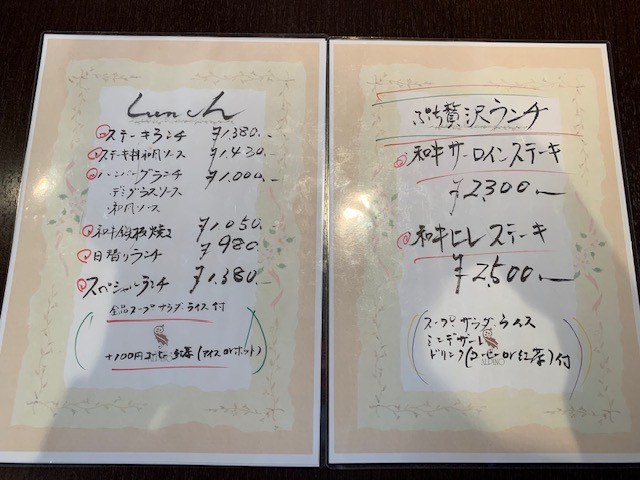 Lunch
ステーキランチ ¥1,380.-
ステーキ丼和風ソース ¥1,430.-
ハンバーグランチ ¥1,000.-
・デミグラスソース
・和風ソース
和牛鉄板焼き ¥1,050.
日替りランチ ¥980.
スペシャルランチ ¥1,380.-
全品スープ サラダ ライス付
+100円コーヒー・紅茶(アイスorホット)
ぷち贅沢ランチ
和牛サーロインステーキ
¥2,300-
和牛ヒレステーキ
¥2,500-
スープ サラダ ライス
ミニデザート
ドリンク(コーヒーor紅茶)付